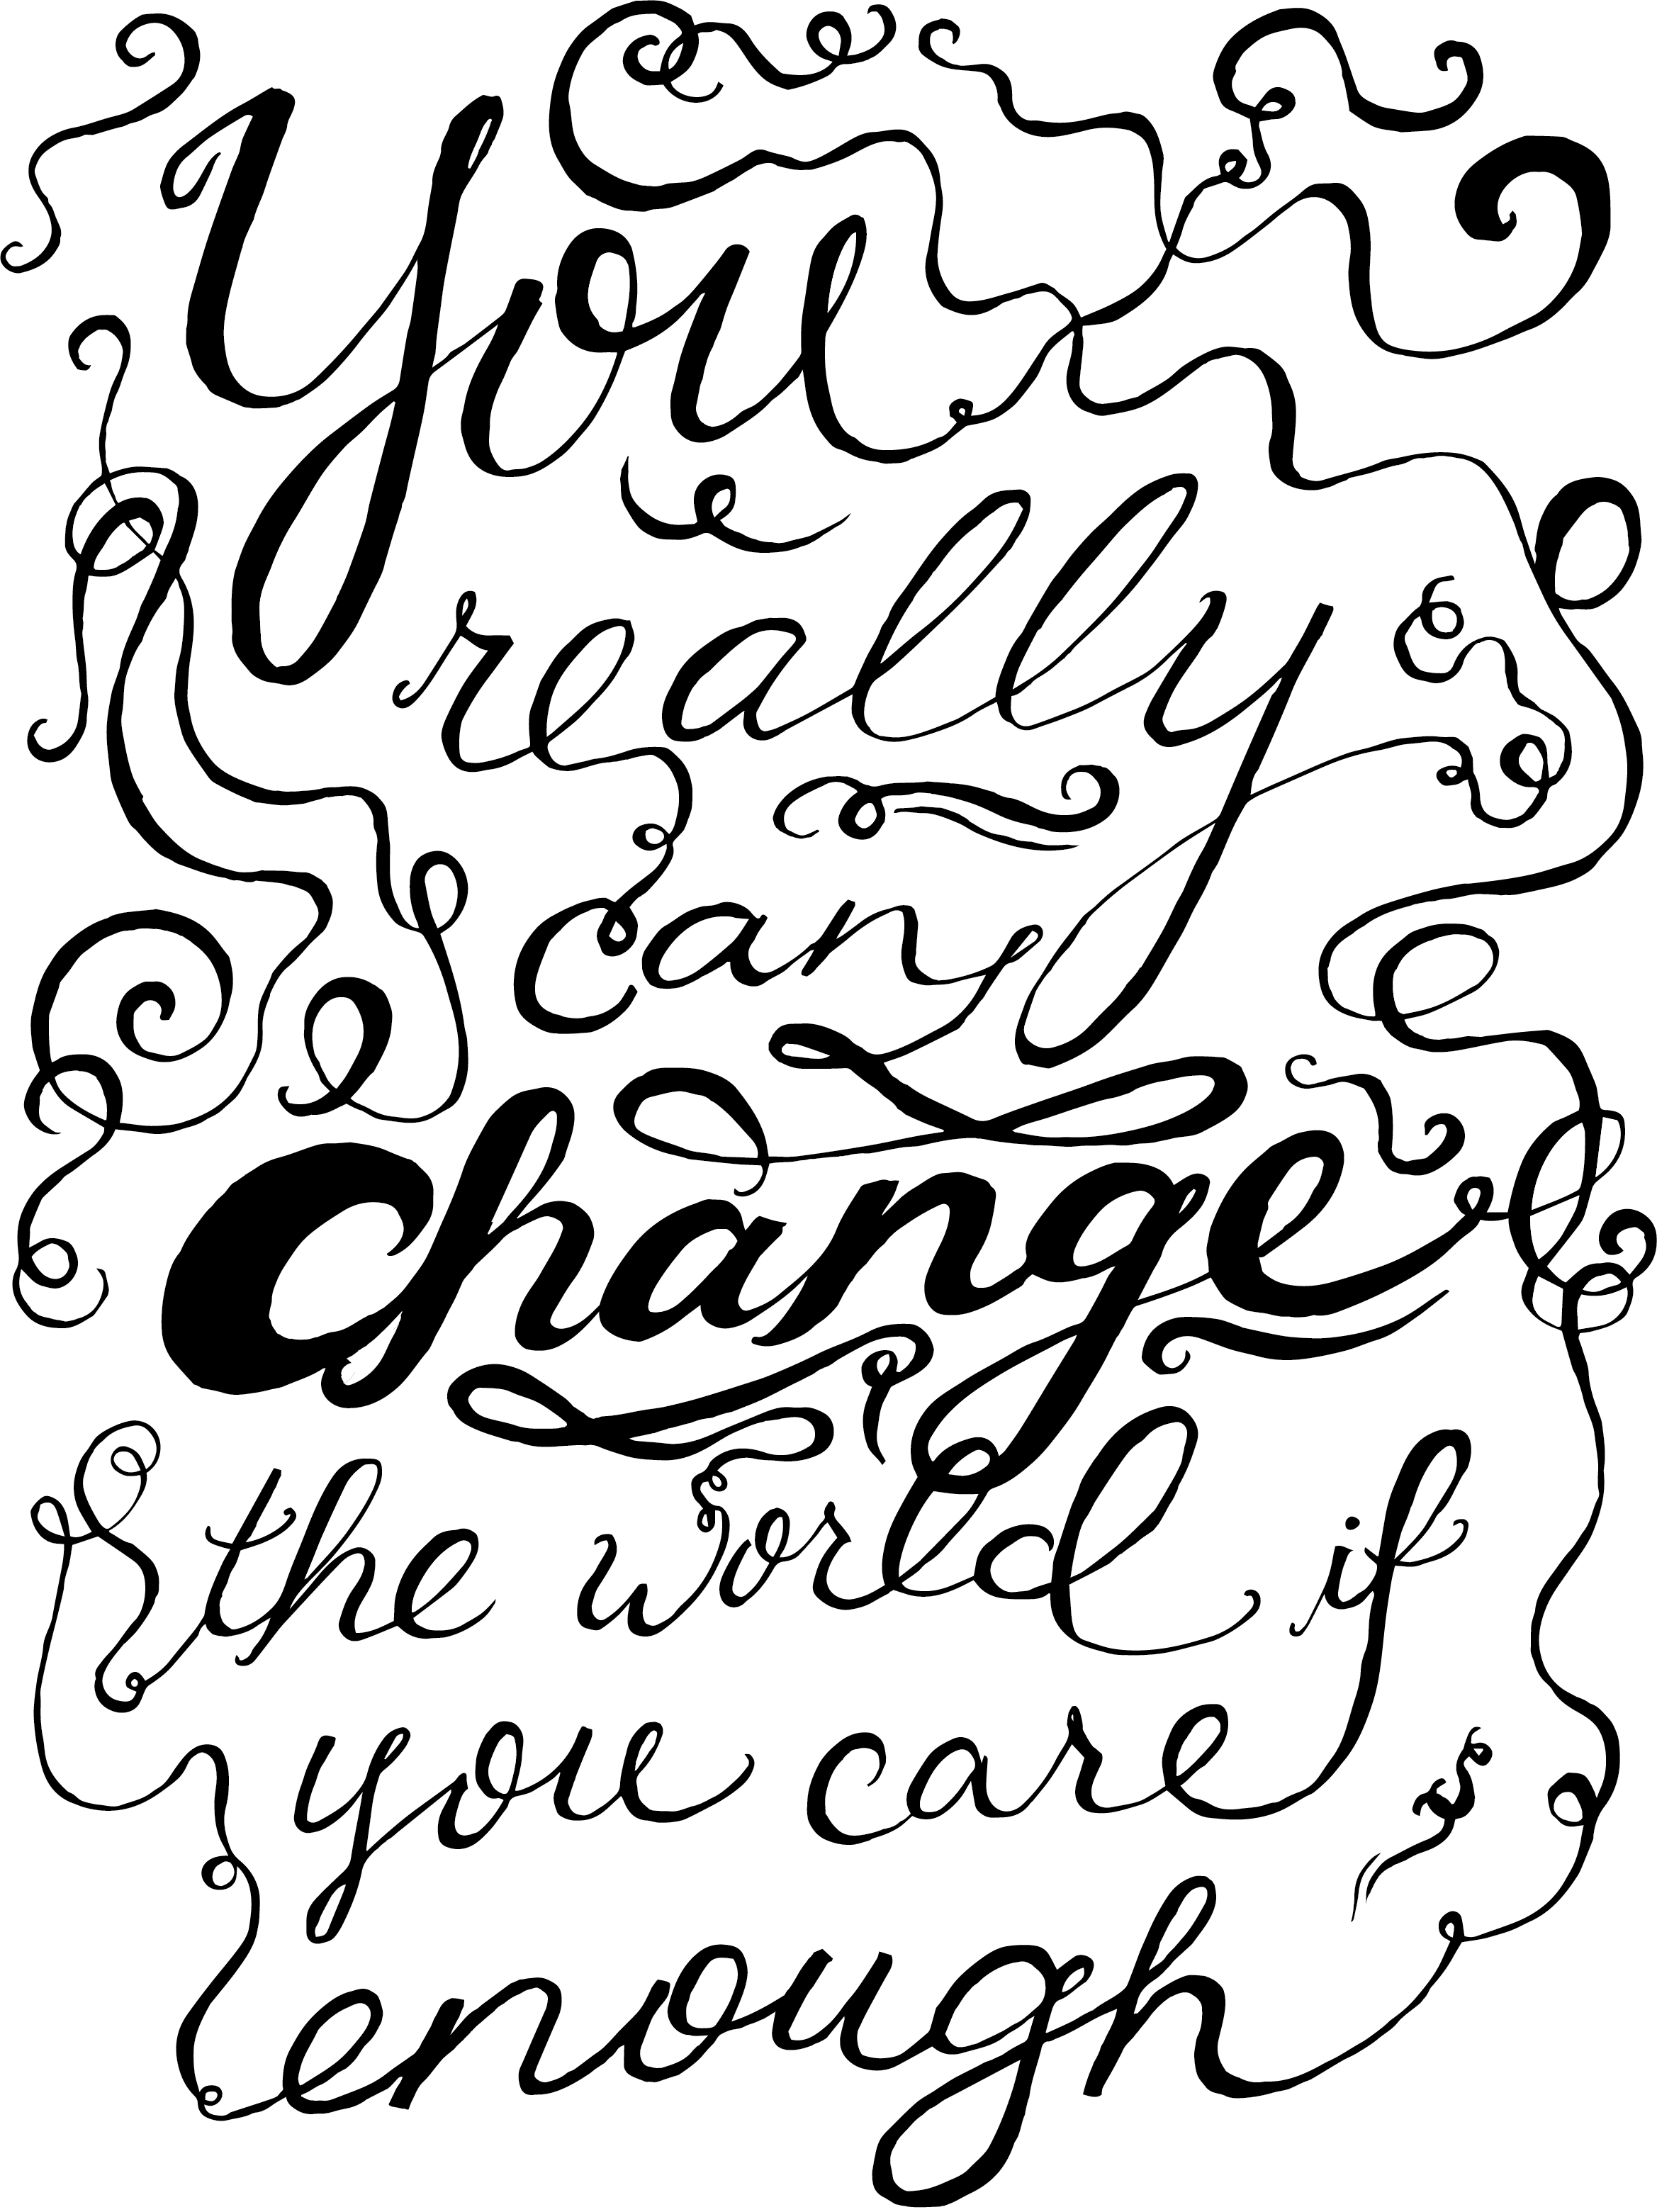 You
really
can
change
the world if
you care
enough